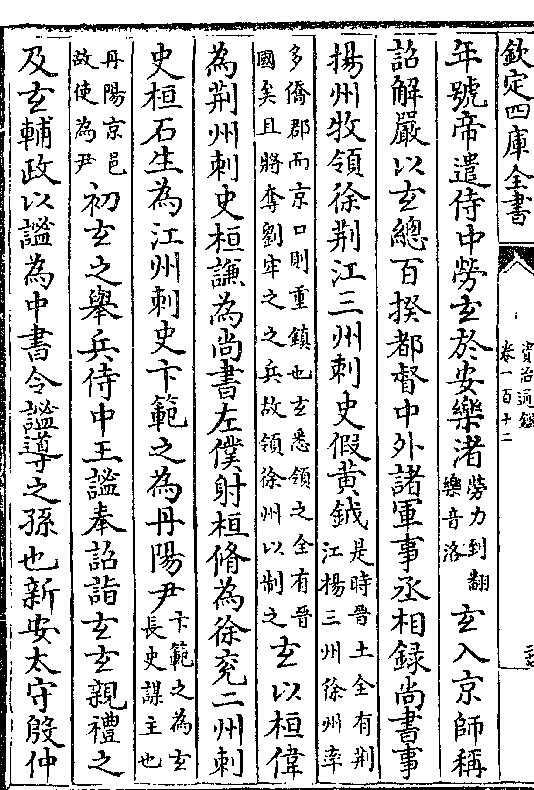 欽定四庫全書
資治通鑑
卷一百十二
年號帝遣侍中勞玄於安樂渚勞力到翻樂音洛玄入京師稱
詔解嚴以玄總百揆都督中外諸軍事丞相録尚書事
揚州牧領徐荆江三州刺史假黄鉞是時晉土全有荆江揚三州徐州率
多僑郡而京口則重鎮也玄悉領之全有晉國矣且將奪劉牢之之兵故領徐州以制之玄以桓偉
為荆州刺史桓謙為尚書左僕射桓脩為徐兖二州刺
史桓石生為江州刺史卞範之為丹陽尹卞範之為玄長史謀主也
丹陽京邑故使為尹初玄之舉兵侍中王謐奉詔詣玄玄親禮之
及玄輔政以謐為中書令謐導之孫也新安太守殷仲